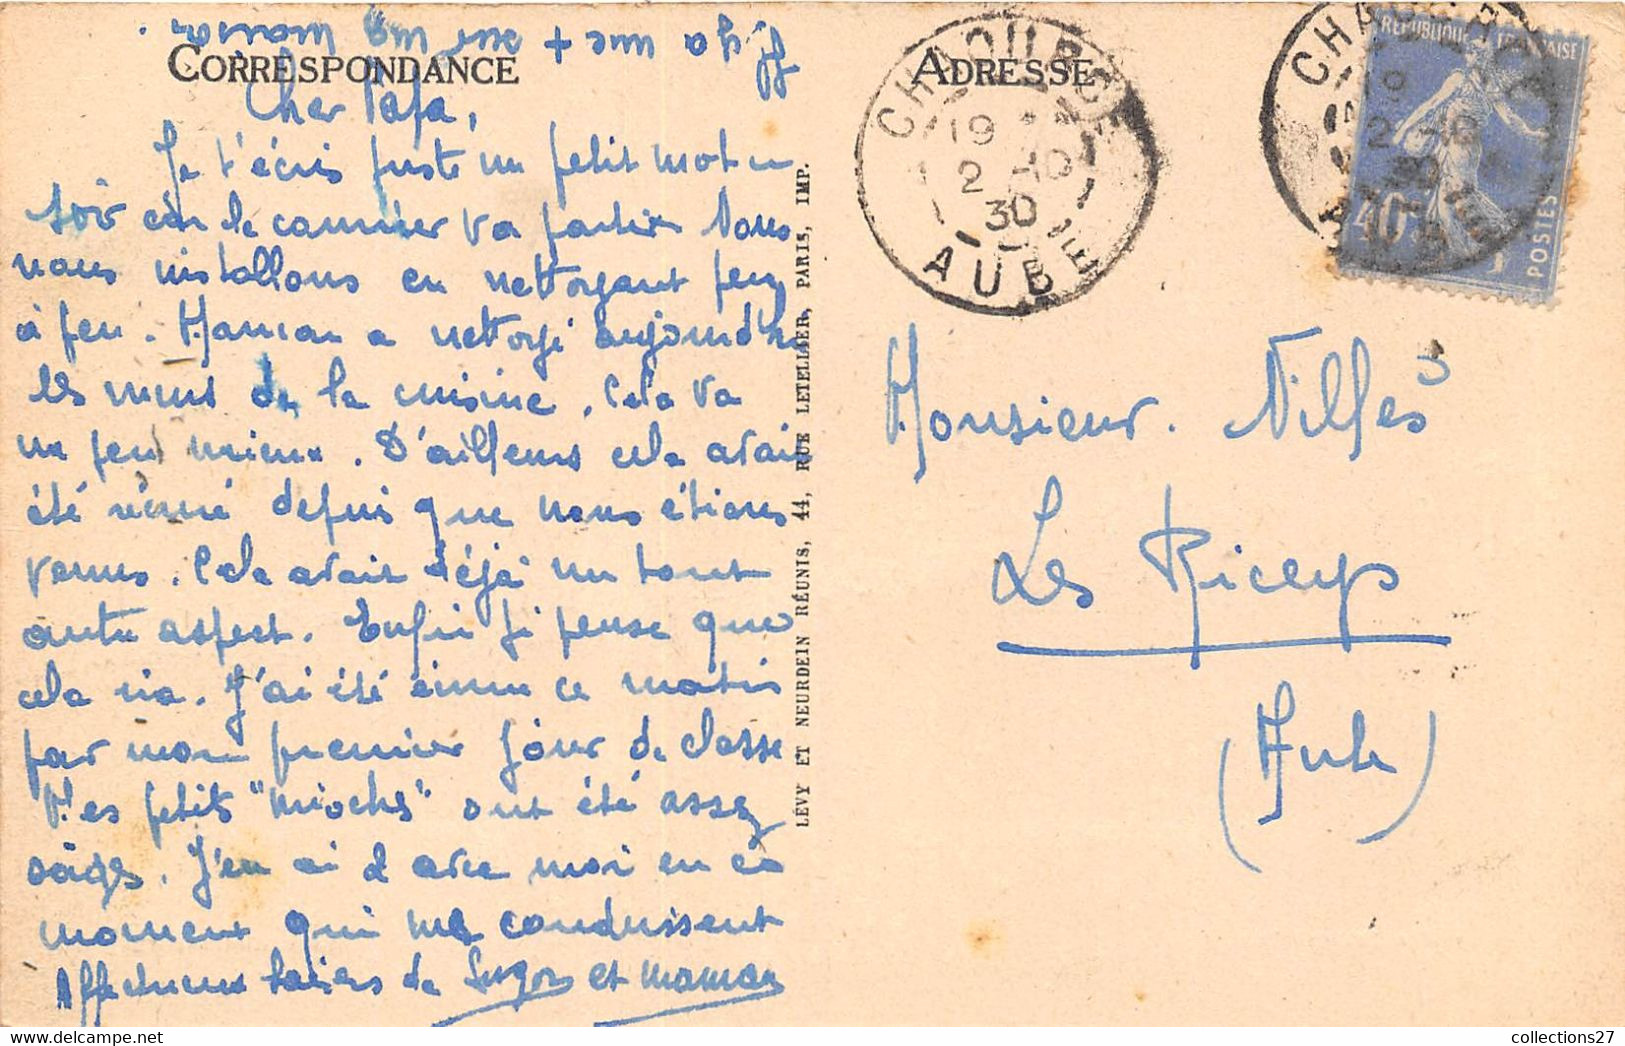 Il y a une + sur ma maison.
CORRESPONDANCE
Cher Papa,
Je t'écris juste un petit mot ce
soir car le courrier va partir. Nous
nous installons en nettoyant peu
à peu. Maman a nettoyé aujourd'hui
les murs de la cuisine. Cela va
un peu mieux. D'ailleurs cela avait
été depuis que nous étions
venus. Cela avait déjà un tout
autre aspect. Enfin je pense que
cela ira. J'ai été émue ce matin
par mon premier jour de classe
Mes petits "mioches" ont été assez
sages. J'en ai 2 avec moi en ce
moment qui me conduisent
Affectueux baisers de et maman
LÉVY ET NEURDEIN RÉUNIS, 44, RUE LETELLIER, PARIS, IMP.
ADRESSE
CHAOURCE
19
2-10
30
AUBE
RÉPUBLIQUE FRANÇAISE
40c
POSTES
Monsieur Nilles
Les Riceys
(Aube)
collections27